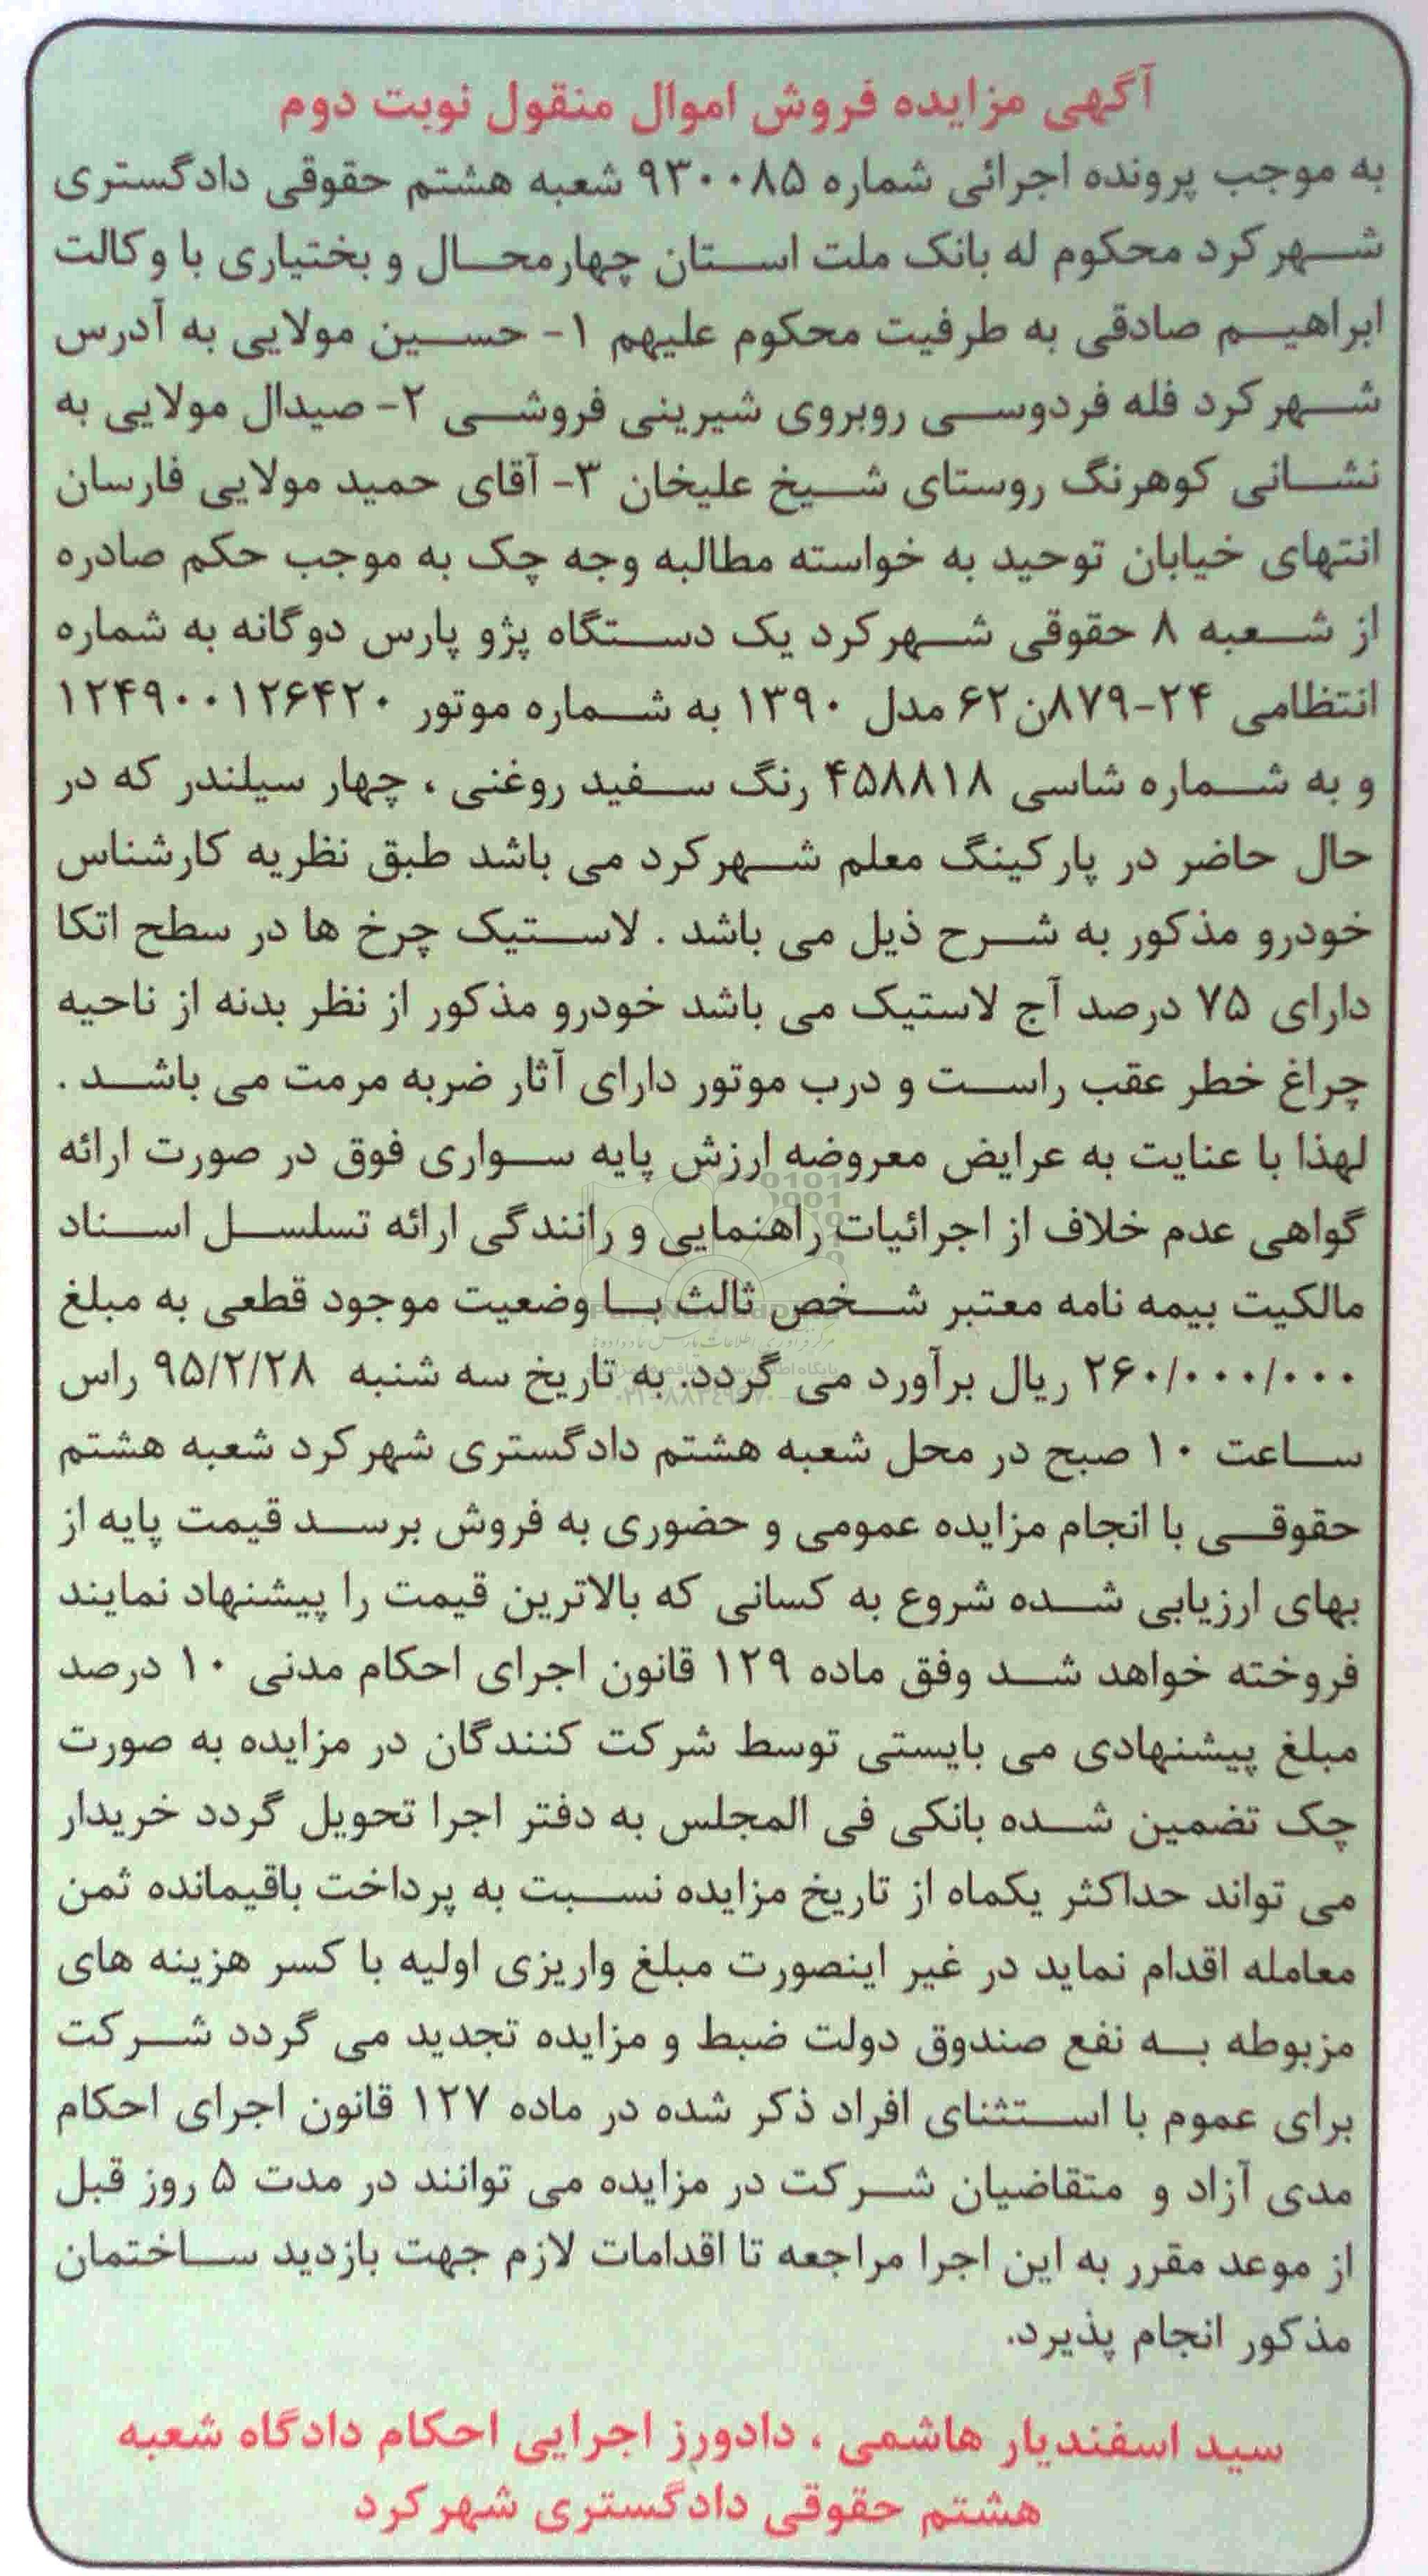 آگهی مزایده فروش اموال منقول نوبت دوم
به موجب پرونده اجرائی شماره ۹۳۰۰۸۵ شعبه هشتم حقوقی دادگستری
شهرکرد محکوم له بانک ملت استان چهارمحال و بختیاری با وکالت
ابراهیم صادقی به طرفیت محکوم علیهم ۱- حسین مولایی به آدرس
شهرکرد فله فردوسی روبروی شیرینی فروشی ۲- صیدال مولایی به
نشانی کوهرنگ روستای شیخ علیخان ۳- آقای حمید مولایی فارسان
انتهای خیابان توحید به خواسته مطالبه وجه چک به موجب حکم صادره
از شعبه ۸ حقوقی شهرکرد یک دستگاه پژو پارس دوگانه به شماره
انتظامی ۲۴-۸۷۹ن۶۲ مدل ۱۳۹۰ به شماره موتور ۱۲۴۹۰۰۱۲۶۴۲۰
و به شماره شاسی ۴۵۸۸۱۸ رنگ سفید روغنی ، چهار سیلندر که در
حال حاضر در پارکینگ معلم شهرکرد می باشد طبق نظریه کارشناس
خودرو مذکور به شرح ذیل می باشد . لاستیک چرخ ها در سطح اتکا
دارای ۷۵ درصد آج لاستیک می باشد خودرو مذکور از نظر بدنه از ناحیه
چراغ خطر عقب راست و درب موتور دارای آثار ضربه مرمت می باشد .
لهذا با عنایت به عرایض معروضه ارزش پایه سواری فوق در صورت ارائه
گواهی عدم خلاف از اجرائیات راهنمایی و رانندگی ارائه تسلسل اسناد
مالکیت بیمه نامه معتبر شخص ثالث با وضعیت موجود قطعی به مبلغ
۲۶۰/۰۰۰/۰۰۰ ریال برآورد می گردد. به تاریخ سه شنبه ۹۵/۲/۲۸ راس
ساعت ۱۰ صبح در محل شعبه هشتم دادگستری شهرکرد شعبه هشتم
حقوقی با انجام مزایده عمومی و حضوری به فروش برسد قیمت پایه از
بهای ارزیابی شده شروع به کسانی که بالاترین قیمت را پیشنهاد نمایند
فروخته خواهد شد وفق ماده ۱۲۹ قانون اجرای احکام مدنی ۱۰ درصد
مبلغ پیشنهادی می بایستی توسط شرکت کنندگان در مزایده به صورت
چک تضمین شده بانکی فی المجلس به دفتر اجرا تحویل گردد خریدار
می تواند حداکثر یکماه از تاریخ مزایده نسبت به پرداخت باقیمانده ثمن
معامله اقدام نماید در غیر اینصورت مبلغ واریزی اولیه با کسر هزینه های
مزبوطه به نفع صندوق دولت ضبط و مزایده تجدید می گردد شرکت
برای عموم با استثنای افراد ذکر شده در ماده ۱۲۷ قانون اجرای احکام
مدی آزاد و متقاضیان شرکت در مزایده می توانند در مدت ۵ روز قبل
از موعد مقرر به این اجرا مراجعه تا اقدامات لازم جهت بازدید ساختمان
مذکور انجام پذیرد.
سید اسفندیار هاشمی ، دادورز اجرایی احکام دادگاه شعبه
هشتم حقوقی دادگستری شهرکرد